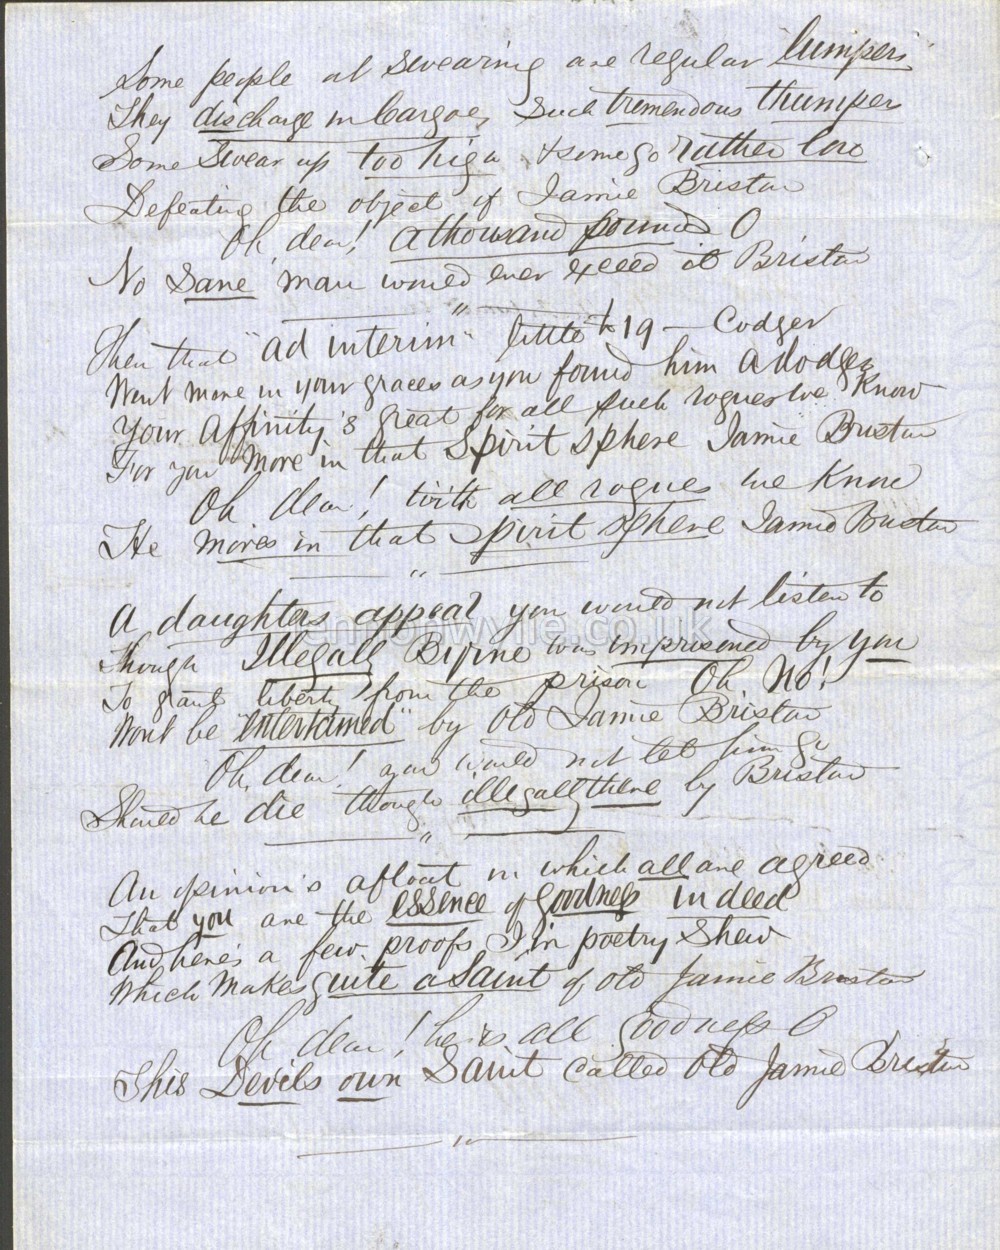 Some people at swearing are regular lumpers
They discharge in Cargoes such tremendous thumpers
Some swear up too high & some go rather low
Defeating the object of Jamie Bristow
Oh dear! a thousand pound O
No Sane man would ever exceed it Bristow
Then that "ad interim" little 19 - Codger
Went more in your graces as you found him a dodger
Your Affinity's great for all such rogues we know
For you "More" in that Spirit sphere Jamie Bristow
Oh dear! with all rogues we know
He moves in that spirit sphere Jamie Bristow
A daughters appeal you would not listen to
Though Illegally Byrne was imprisoned by you
To grant liberty from the prison Oh No!
Wont be "Entertained" by old Jamie Bristow
Oh dear! you would not let him go
Should he die though illegally there by Bristow
An opinion's afloat in which all are agreed
That you are the essence of goodness indeed
And here's a few proofs I in poetry shew
Which makes quite a Saint of old Jamie Bristow
Oh dear! he is all goodness O
This Devils own Saint called old Jamie Bristow
emmonwylie.co.uk